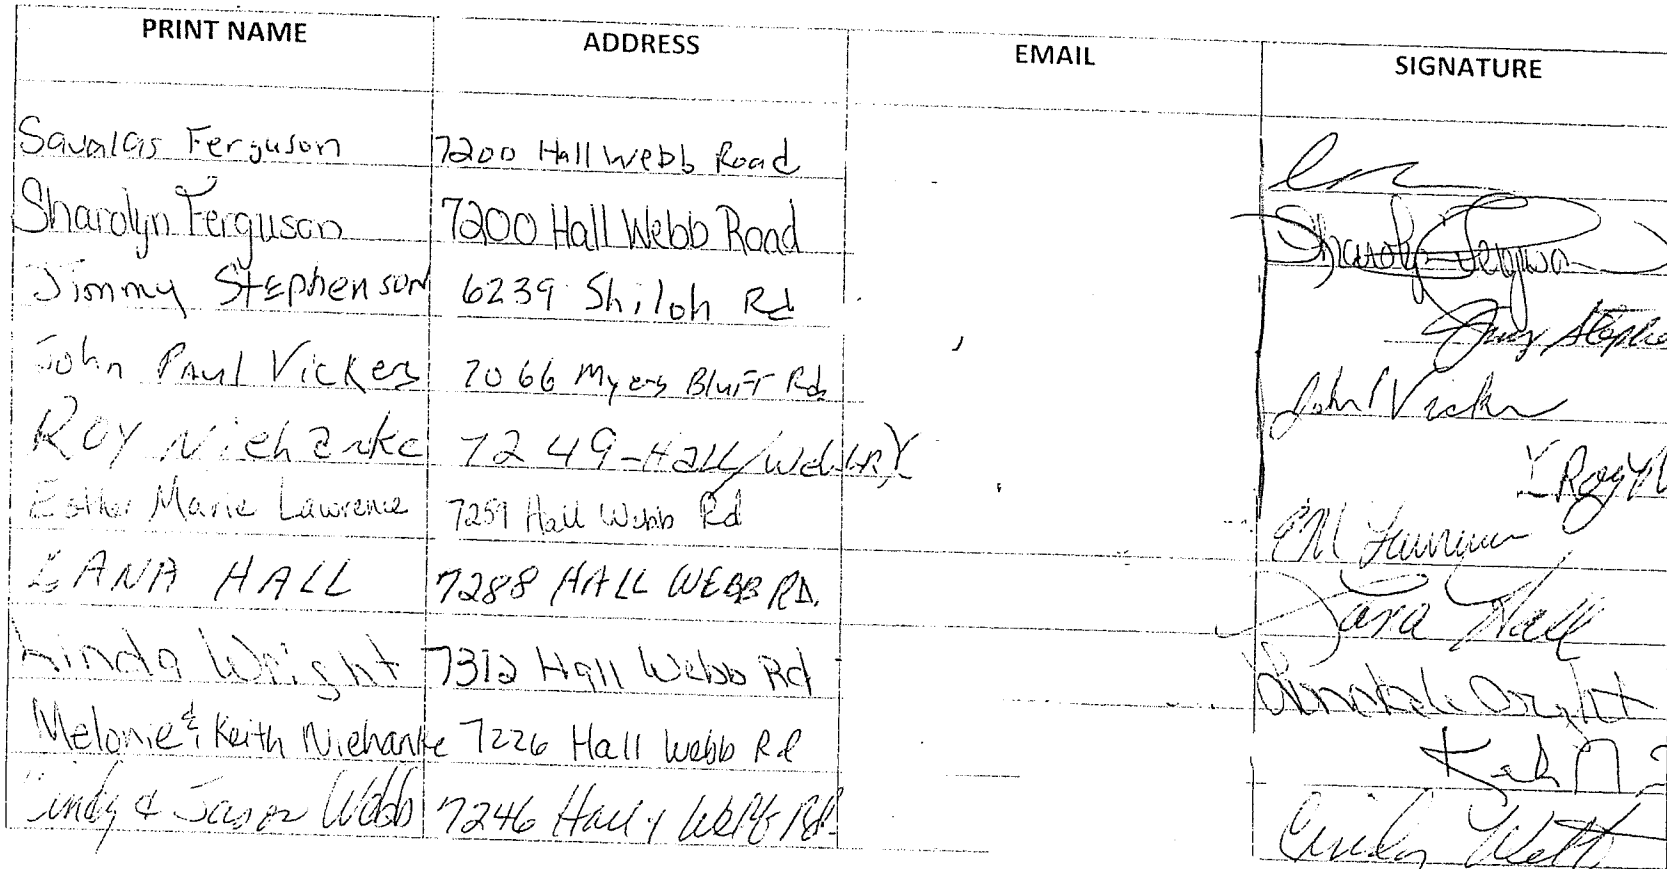 PRINT NAME ADDRESS EMAIL SIGNATURE
Savalas Ferguson 7200 Hall Webb Road
Sharolyn Ferguson 7200 Hall Webb Road Sharolyn Ferguson
Jimmy Stephenson 6239 Shiloh Rd
John Paul Vickers 7066 Myers Bluff Rd John P Vickers
ROY Niehanke 7249-Hall/Webb Roy
Esther Marie Lawrence 7259 Hall Webb Rd EM Lawrence
LANA HALL 7288 HALL WEBB RD. Lana Hall
Linda Wright 7312 Hall Webb Rd Linda Wright
Melonie & Keith Niehanke 7226 Hall Webb Rd
Cindy & Jason Webb 7246 Hall Webb Rd Cindy Webb